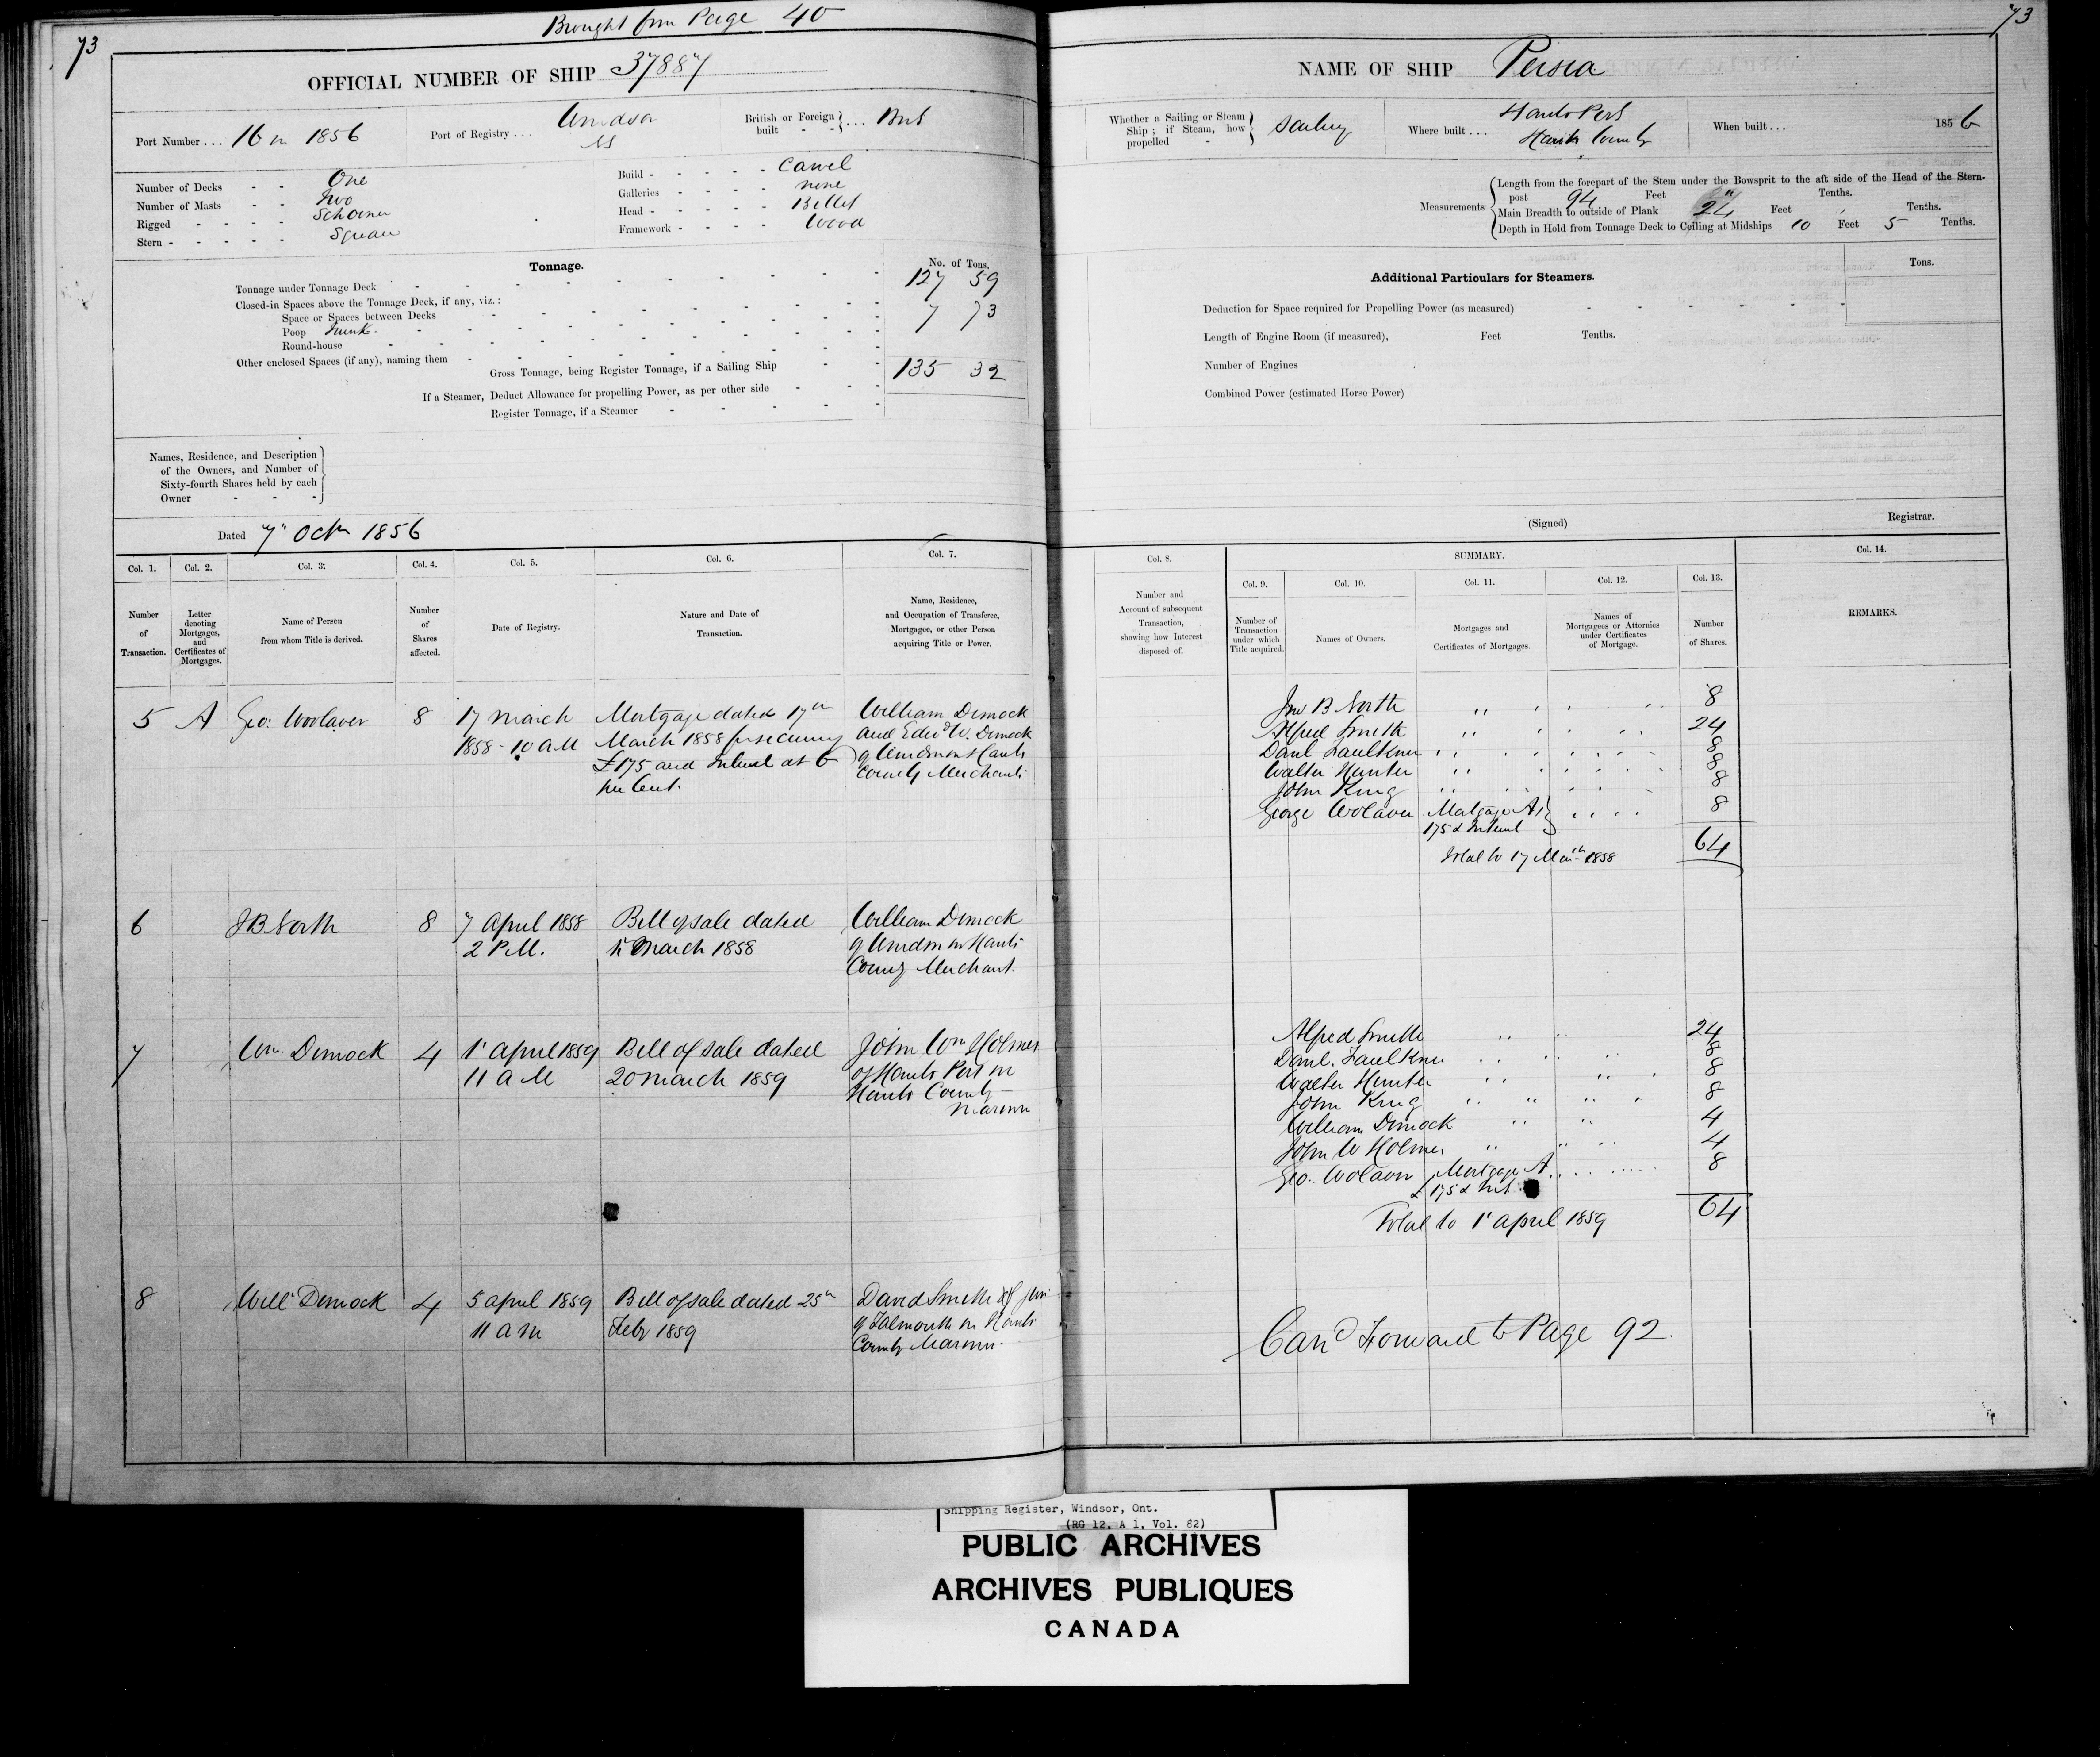 Brought from Page 40
73
OFFICIAL NUMBER OF SHIP 37887
Port Number . . . 16 in 1856
Port of Registry . . . Windsor
NS
British or Foreign built - - } . . . Brit
Number of Decks - - One
Number of Masts - - Two
Rigged - - - - Schooner
Stern - - - - - Square
Build - - - - - Carvel
Galleries - - - - none
Head - - - - - Billet
Framework - - - - Wood
Tonnage.
No. of Tons.
Tonnage under Tonnage Deck - 127 59
Closed-in Spaces above the Tonnage Deck, if any, viz.:
Space or Spaces between Decks
Poop Trunk - 7 73
Round-house
Other enclosed Spaces (if any), naming them
Gross Tonnage, being Register Tonnage, if a Sailing Ship - 135 32
If a Steamer, Deduct Allowance for propelling Power, as per other side
Register Tonnage, if a Steamer
Names, Residence, and Description
of the Owners, and Number of
Sixty-fourth Shares held by each
Owner - - -
Dated 7" Octr 1856
Col. 1. Col. 2. Col. 3. Col. 4. Col. 5. Col. 6. Col. 7.
Number of Transaction.
Letter denoting Mortgages, and Certificates of Mortgages.
Name of Person from whom Title is derived.
Number of Shares affected.
Date of Registry.
Nature and Date of Transaction.
Name, Residence, and Occupation of Transferee, Mortgagee, or other Person acquiring Title or Power.
5 A Geo: Woolaver 8 17 March Mortgage dated 17th William Dimock
1858 - 10 AM March 1858 for securing and Edwd W. Dimock
£175 and Interest at 6 of Windsor in Hants
per Cent. County Merchants
6 JB North 8 7 April 1858 Bill of sale dated William Dimock
2 P.M. March 1858 of Windsor in Hants
County Merchant.
7 Wm Dimock 4 1' April 1859 Bill of sale dated John Wm Holmes
11 AM 20 March 1859 of Hants Port in
Hants County
Mariner
8 Will Dimock 4 5 April 1859 Bill of sale dated 25th David Smith of Jun
11 am Feby 1859 of Falmouth in Hants
County Mariner
73
NAME OF SHIP Persia
Whether a Sailing or Steam Ship; if Steam, how propelled - } Sailing
Where built . . . Hants Port
Hants County
When built . . . 1856
Measurements
Length from the forepart of the Stem under the Bowsprit to the aft side of the Head of the Stern-
post 94 Feet " Tenths.
Main Breadth to outside of Plank 24 Feet Tenths.
Depth in Hold from Tonnage Deck to Ceiling at Midships 10 Feet 5 Tenths.
Additional Particulars for Steamers.
Tons.
Deduction for Space required for Propelling Power (as measured)
Length of Engine Room (if measured), Feet Tenths.
Number of Engines
Combined Power (estimated Horse Power)
(Signed) Registrar.
Col. 8. SUMMARY. Col. 14.
Col. 9. Col. 10. Col. 11. Col. 12. Col. 13.
Number and Account of subsequent Transaction, showing how Interest disposed of.
Number of Transaction under which Title acquired.
Names of Owners.
Mortgages and Certificates of Mortgages.
Names of Mortgagees or Attornies under Certificates of Mortgage.
Number of Shares.
REMARKS.
Jno B North 8
Alfred Smith 24
Danl Faulkner 8
Walter Hunter 8
John King 8
George Wolaver Mortgage A 8
175 & Interest
Total to 17 March 1858 64
Alfred Smith 24
Danl. Faulkner 8
Walter Hunter 8
John King 8
William Dimock 4
John W Holmes 4
Geo. Wolaver Mortgage A 8
£175 & Int
Total to 1' April 1859 64
Card Forward to Page 92
Shipping Register, Windsor, Ont.
(RG 12, A 1, Vol. 82)
PUBLIC ARCHIVES
ARCHIVES PUBLIQUES
CANADA